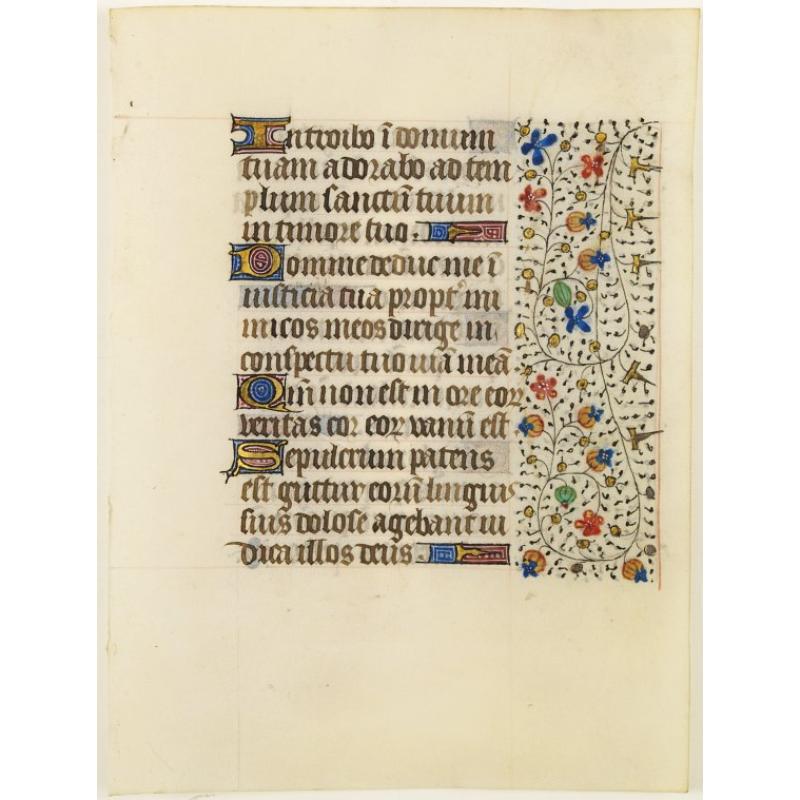 Introibo ī domum
tuam adorabo ad tem
plum sanctū tuum
in timore tuo.
Domine deduc me ī
iusticia tua propt' ini
micos meos dirige in
conspectu tuo uiā meā.
Qm̄ non est in ore eoꝝ
veritas cor eoꝝ vanū est.
Sepulcrum patens
est guttur eorū linguis
suis dolose agebant iu
dica illos deus.